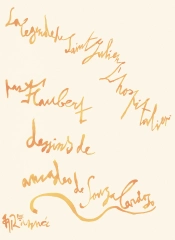 La légende de
Saint Julien
L'Hospitalier
par Flaubert
dessins de
amadeo de Souza Cardoso